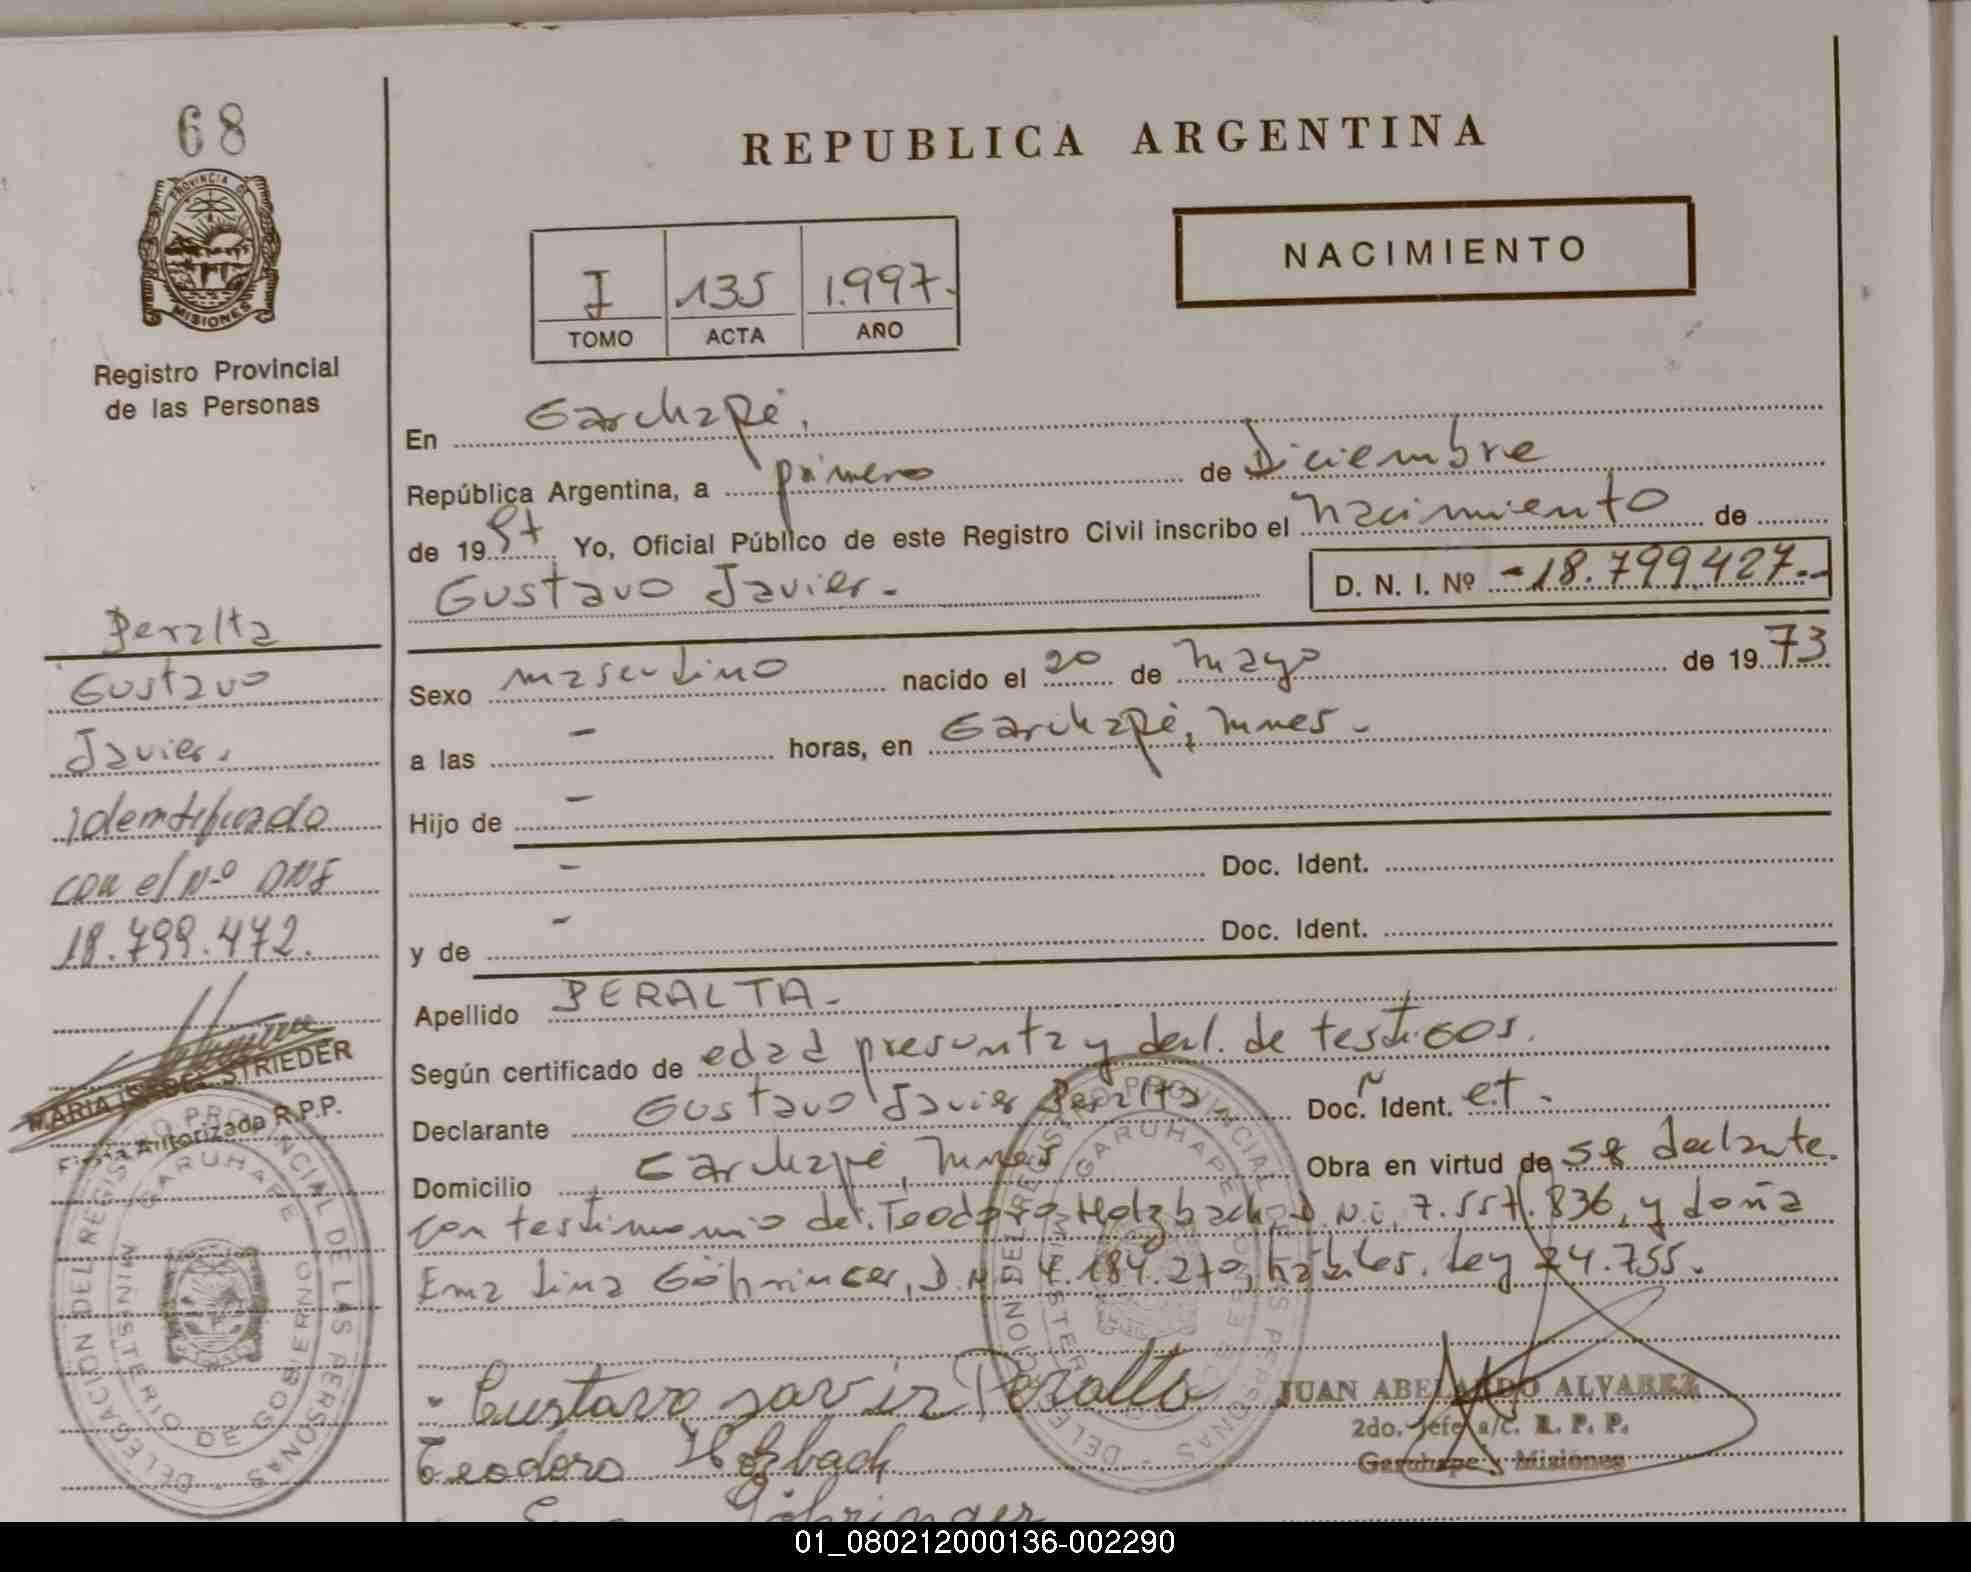 68
PROVINCIA DE
MISIONES
Registro Provincial
de las Personas
Peralta
Gustavo
Javier.
identificado
con el Nº DNI
18.799.472.
MARIA ISABEL STRIEDER
Firma Autorizada R.P.P.
DELEGACION DEL REGISTRO PROVINCIAL DE LAS PERSONAS
GARUHAPE
MINISTERIO DE GOBIERNO
REPUBLICA ARGENTINA
NACIMIENTO
I 135 1.997.-
TOMO ACTA AÑO
En Garuhapé,
República Argentina, a primero de Diciembre
de 1997 Yo, Oficial Público de este Registro Civil inscribo el nacimiento de
Gustavo Javier.-
D. N. I. Nº -18.799.427.-
Sexo masculino nacido el 20 de mayo de 1973
a las - horas, en Garuhapé, Mnes.-
Hijo de -
- Doc. Ident.
y de - Doc. Ident.
Apellido PERALTA.-
Según certificado de edad presunta y decl. de testigos.
Declarante Gustavo Javier Peralta Doc. Ident.
Domicilio Garuhapé, Mnes Obra en virtud de declarante.
con testimonio de: Teodoro Holzbach, D.N.i. 7.557.836, y doña
Ema Lina Göhringer, D.N.i 4.184.270, hábiles. Ley 24.755.
Gustavo Javier Peralta
Teodoro Holzbach
Göhringer
DELEGACION DEL REGISTRO PROVINCIAL DE LAS PERSONAS
GARUHAPE
MINISTERIO DE GOBIERNO
JUAN ABELARDO ALVAREZ
2do. Jefe a/c. R. P. P.
Garuhape - Misiones
01_080212000136-002290